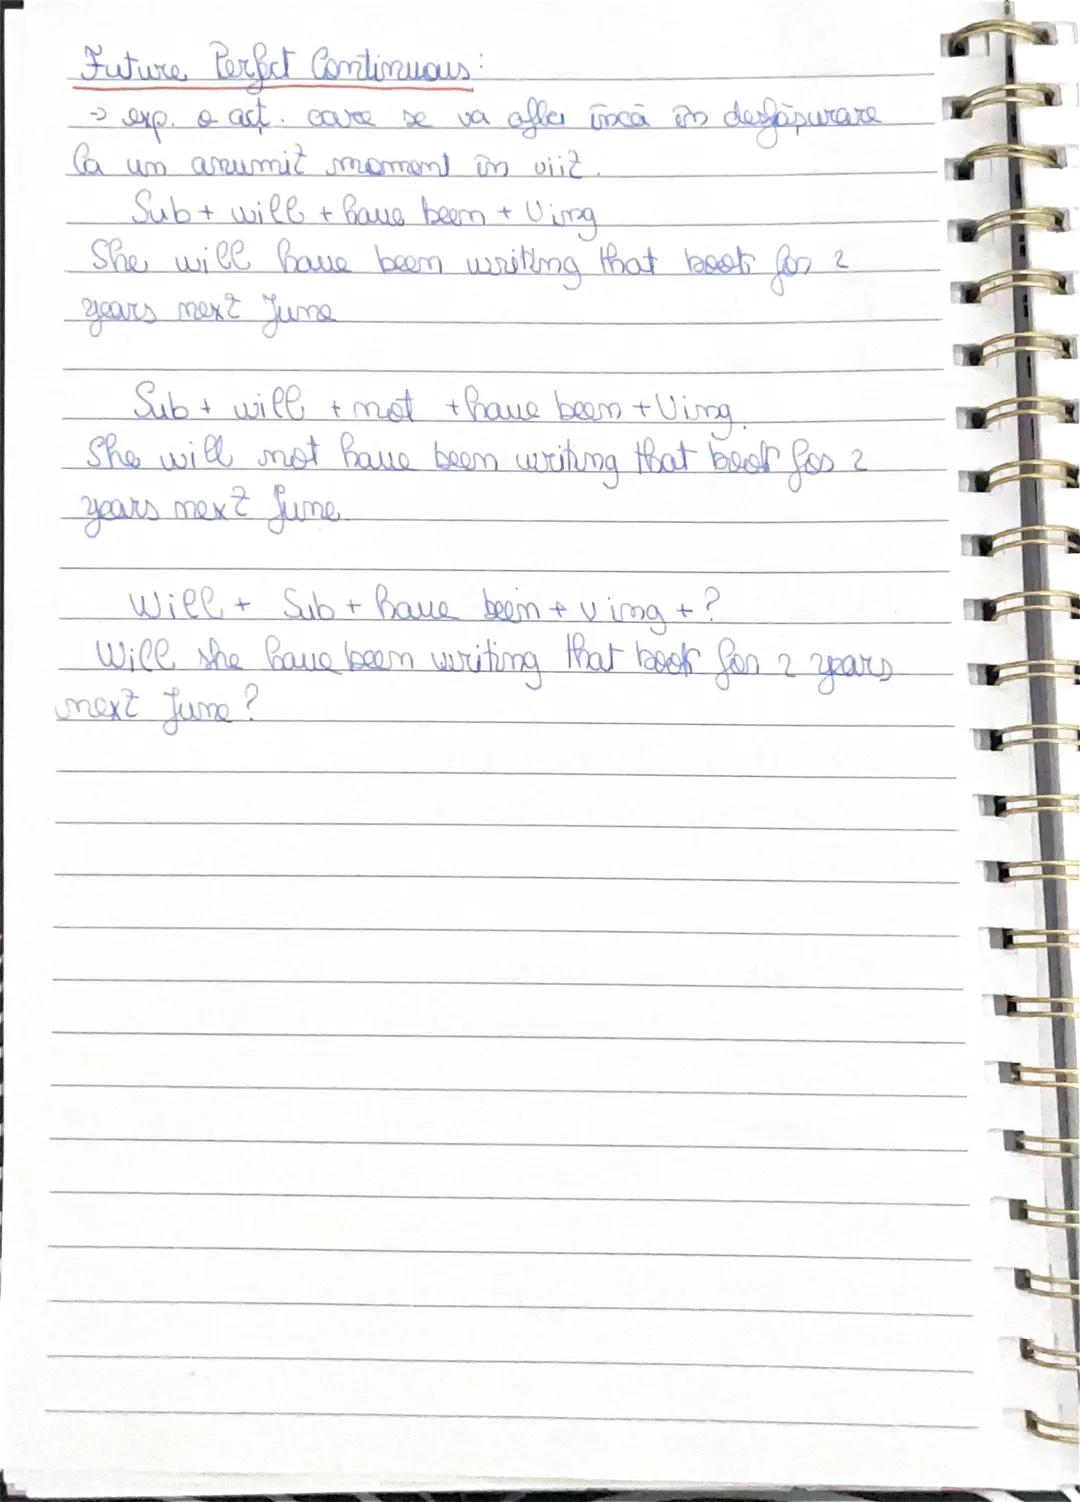 Future Perfect Continuous:
→ exp. o acț. care se va afla încă în desfășurare
la un anumit moment în viit.
Sub + will + have been + Ving
She will have been writing that book for 2
years next June
Sub + will + not + have been + Ving.
She will not have been writing that book for 2
years next June.
Will + Sub + have been + ving + ?
Will she have been writing that book for 2 years
next June?